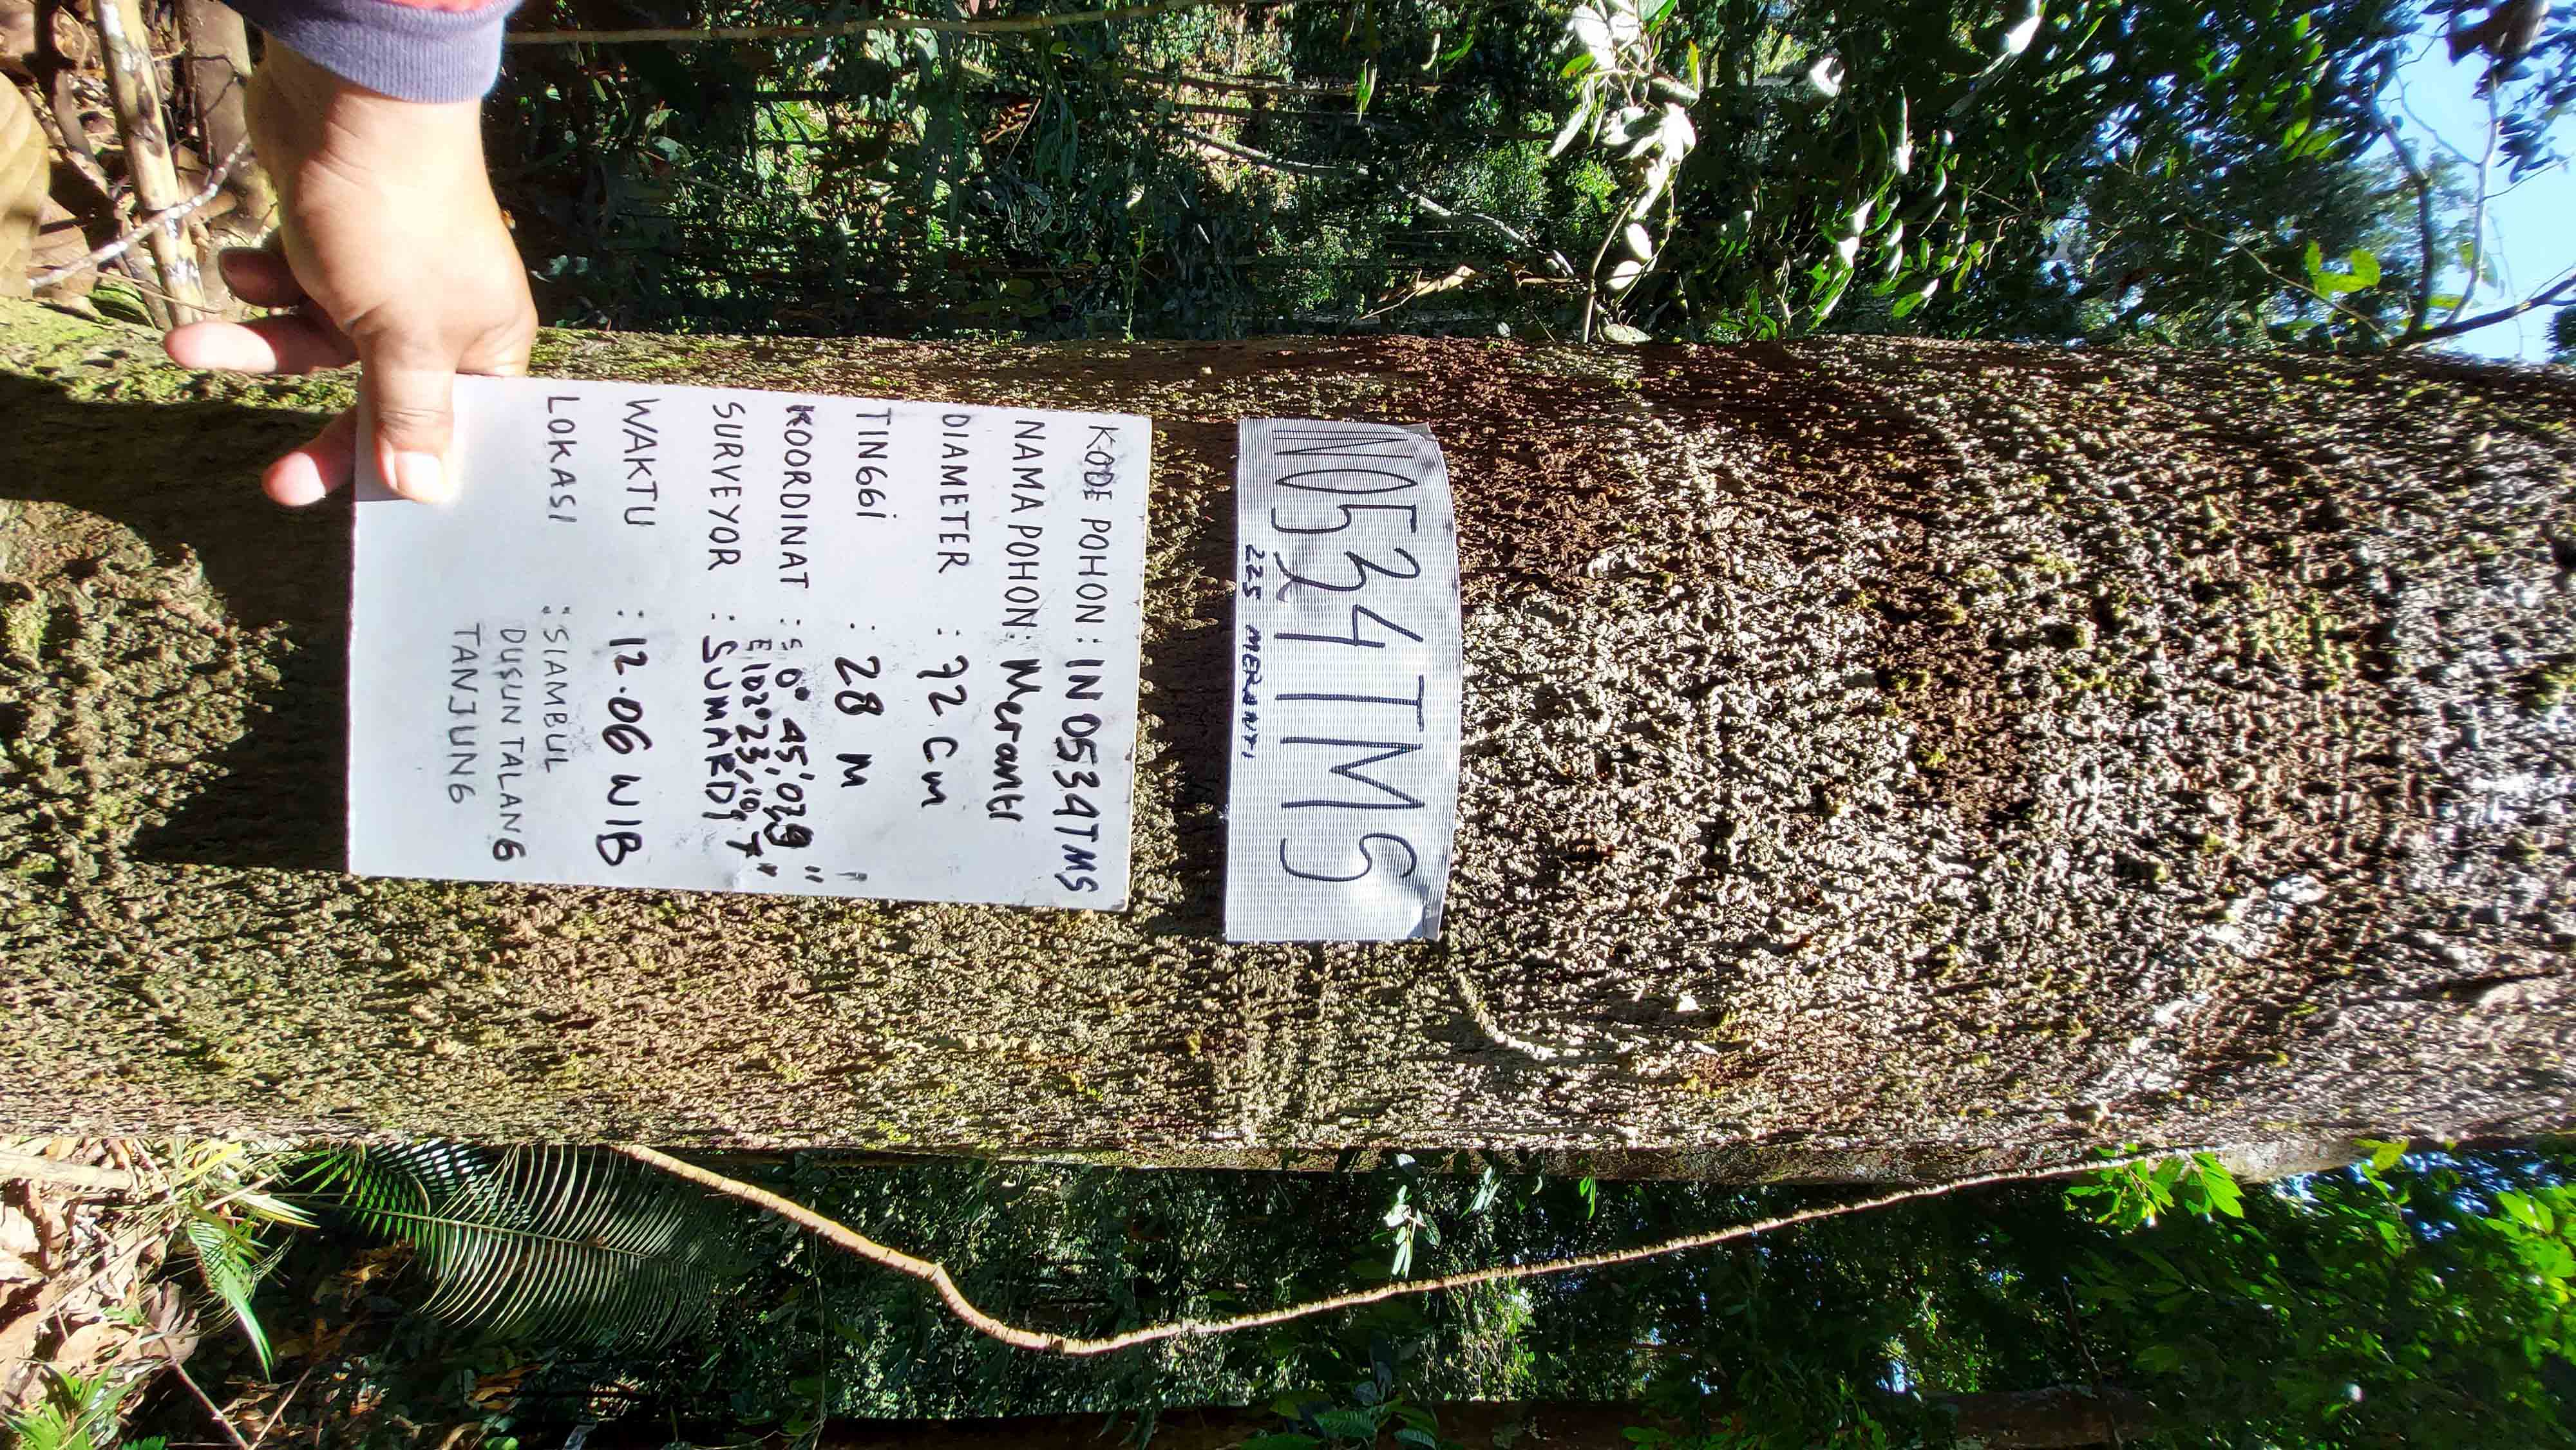 IN0534TMS
225 MERANTI
KODE POHON : IN0534TMS
NAMA POHON : Meranti
DIAMETER : 72 Cm
TINGGI : 28 M
KOORDINAT : S 0° 45', 07,9"
E 102° 23, 10, 7"
SURVEYOR : SUMARDI
WAKTU : 12.06 WIB
LOKASI : SIAMBUL
DUSUN TALANG
TANJUNG